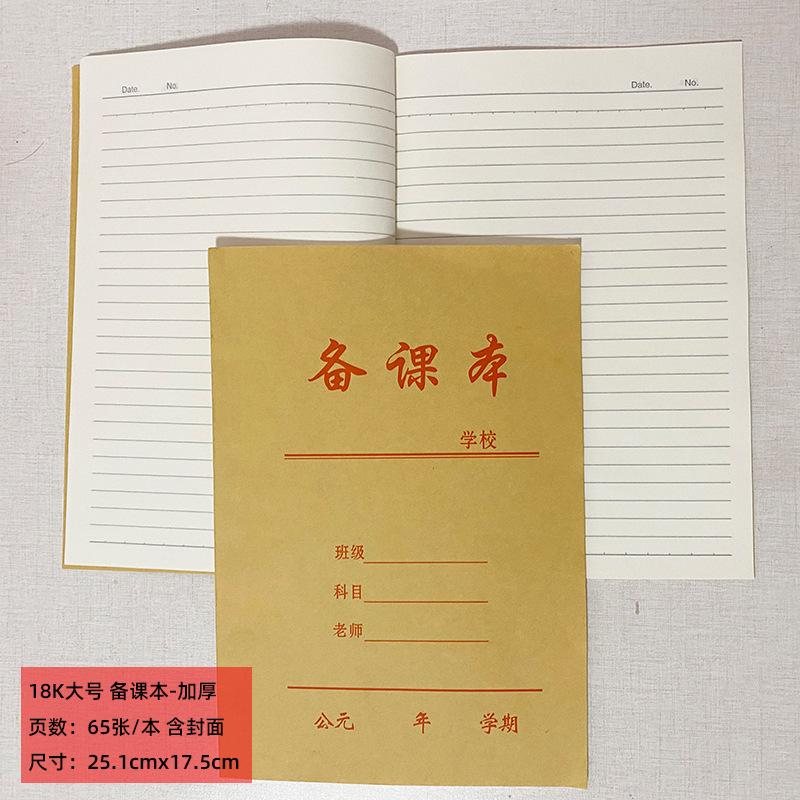 Date. No.
Date. No.
备课本
学校
班级
科目
老师
公元 年 学期
18K大号 备课本-加厚
页数：65张/本 含封面
尺寸：25.1cmx17.5cm